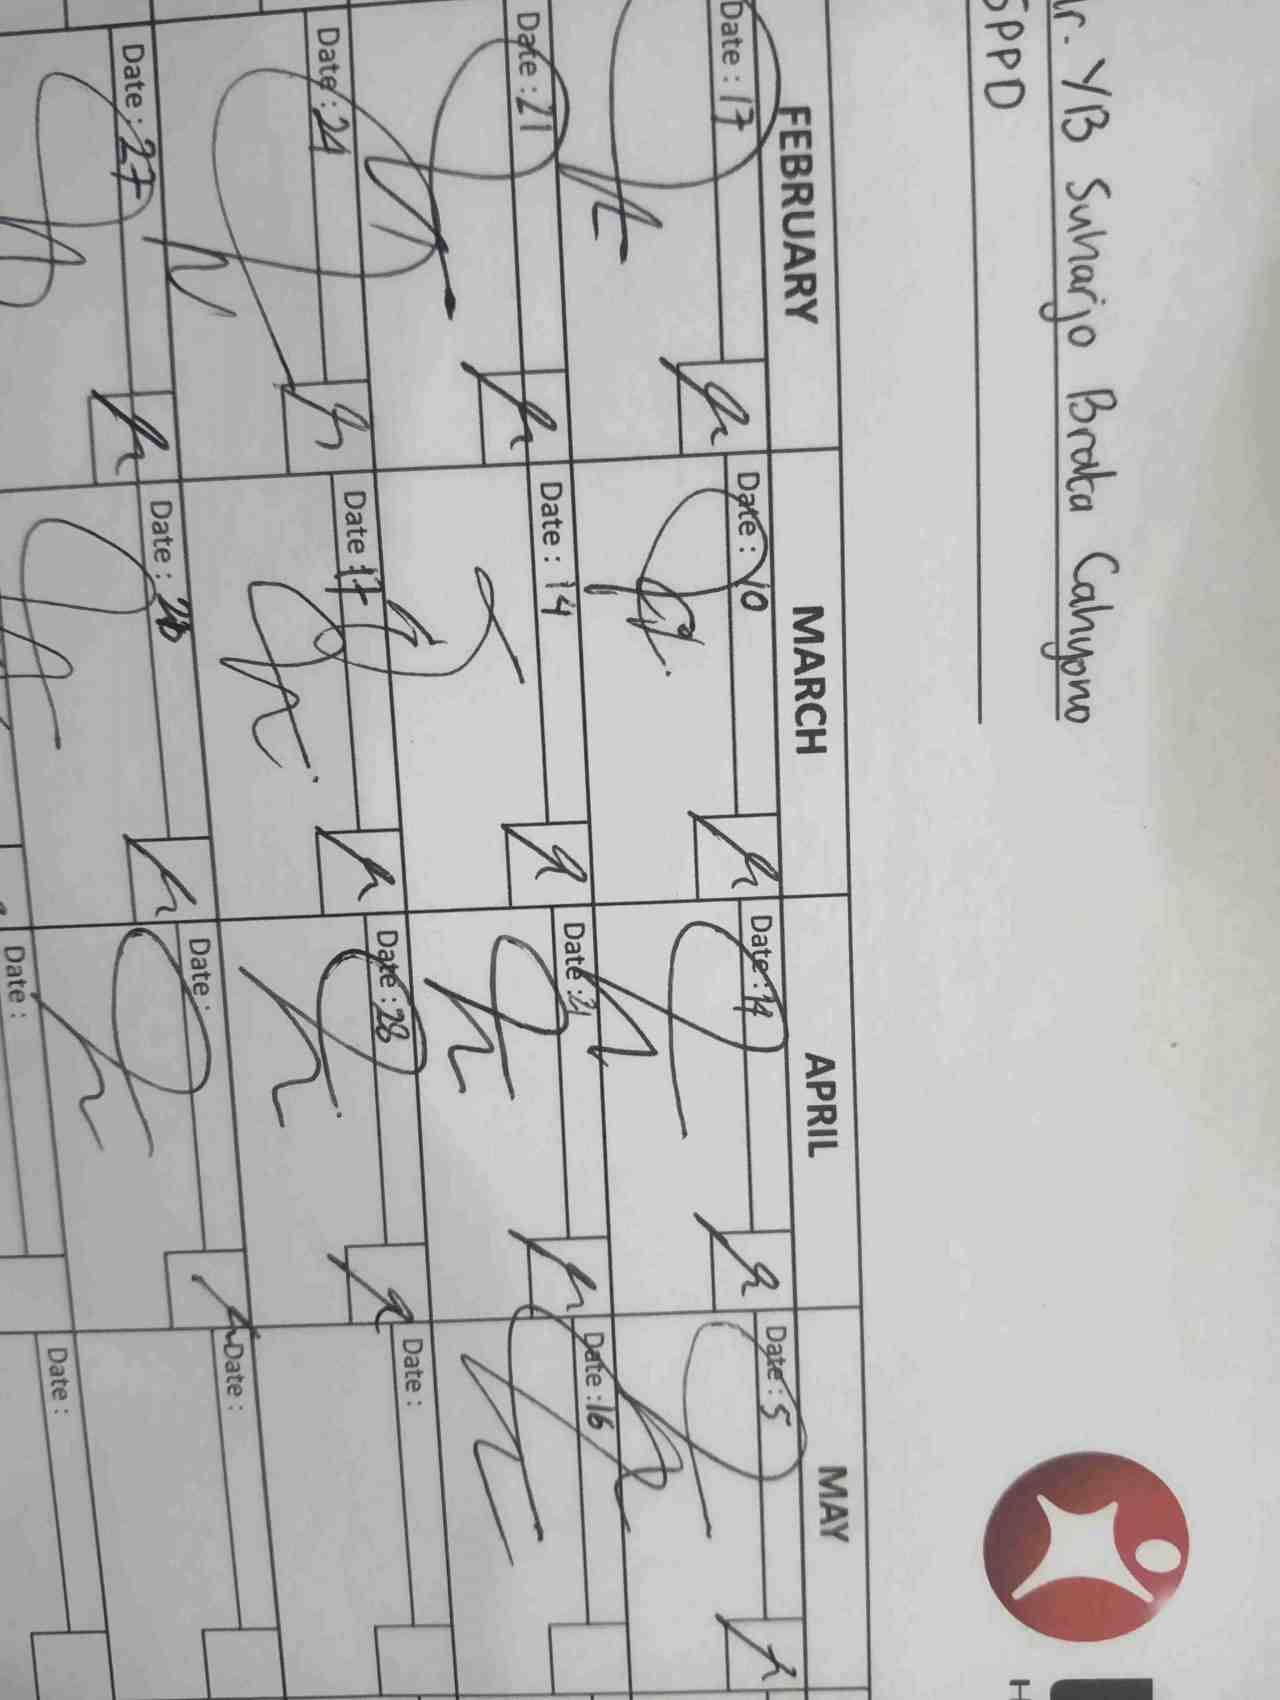 YB Suharjo Brata Cahyono
SPPD
FEBRUARY MARCH APRIL MAY
Date : 17 Date : 10 Date : 14 Date : 5
Date : 21 Date : 14 Date : 21 Date : 16
Date : 24 Date : 17 Date : 28 Date :
Date : 27 Date : Date : Date :
Date : Date :